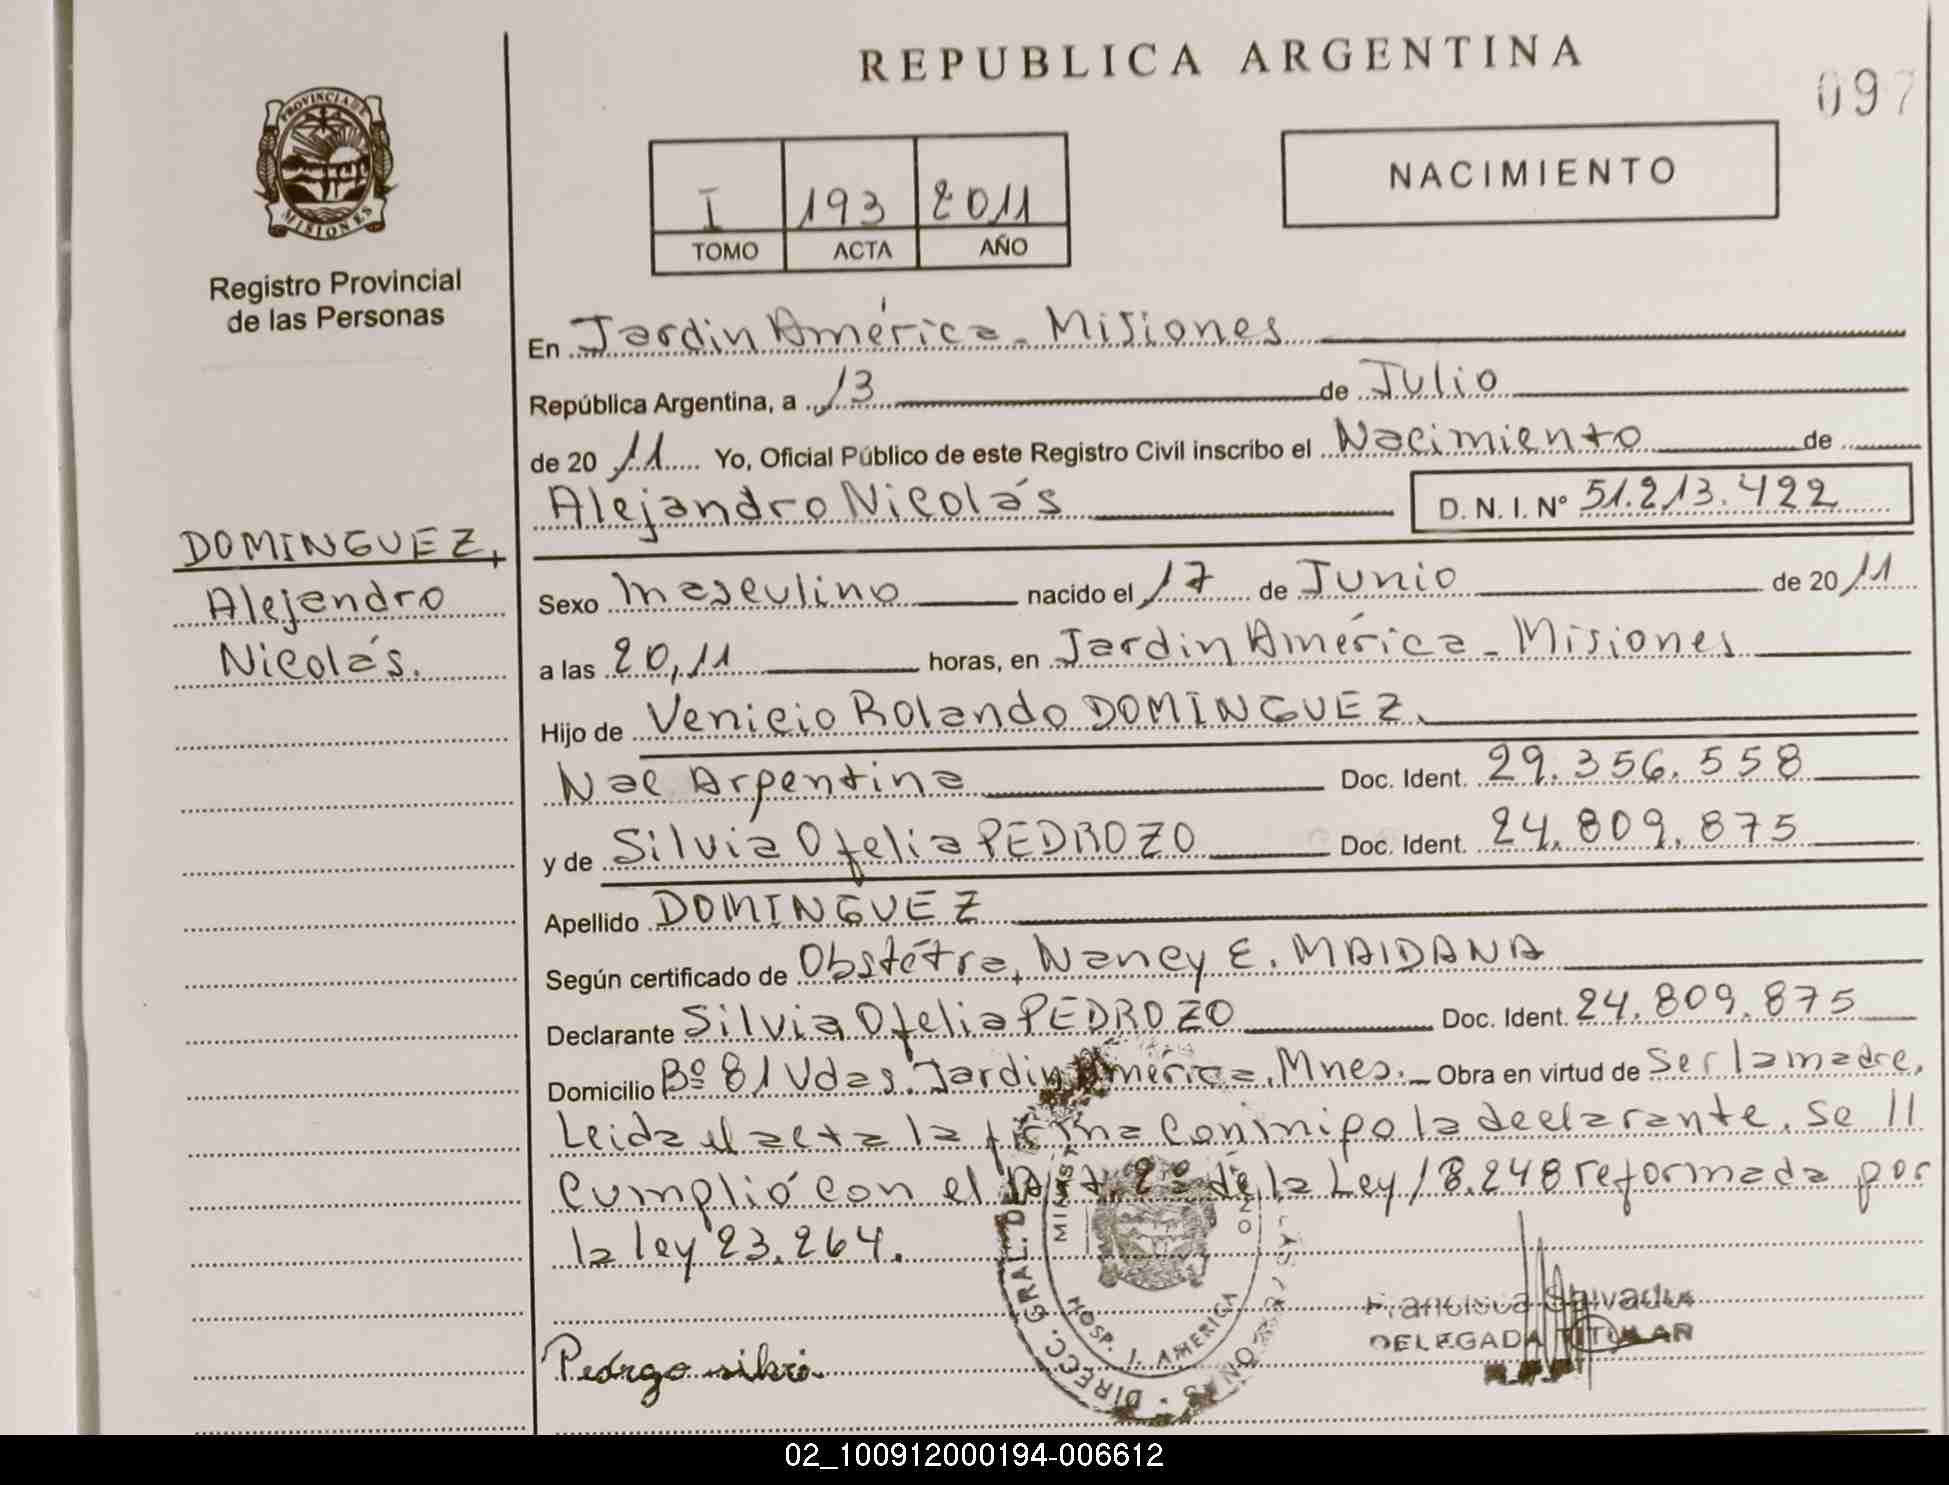 REPUBLICA ARGENTINA
097
PROVINCIA DE
MISIONES
Registro Provincial
de las Personas
I 193 2011
TOMO ACTA AÑO
NACIMIENTO
En Jardin América - Misiones
República Argentina, a 13 de Julio
de 20 11 Yo, Oficial Público de este Registro Civil inscribo el Nacimiento de
Alejandro Nicolás D.N.I. Nº 51.213.422
DOMINGUEZ,
Alejandro
Nicolás.
Sexo Masculino nacido el 17 de Junio de 20 11
a las 20,11 horas, en Jardin América - Misiones
Hijo de Venicio Rolando DOMINGUEZ.
Nac Argentina Doc. Ident. 29.356.558
y de Silvia Ofelia PEDROZO Doc. Ident. 24.809.875
Apellido DOMINGUEZ
Según certificado de Obstétra, Nancy E. MAIDANA
Declarante Silvia Ofelia PEDROZO Doc. Ident. 24.809.875
Domicilio Bº 81 Vdas. Jardin América, Mnes. Obra en virtud de Ser la madre,
Leida el acta la firma conmigo la declarante. Se
Cumplió con el Art. 2º de la Ley 18.248 reformada por
la ley 23.264.
DIRECC. GRAL. D
HOSP. J. AMERICA
DELEGADA TITULAR
02_100912000194-006612